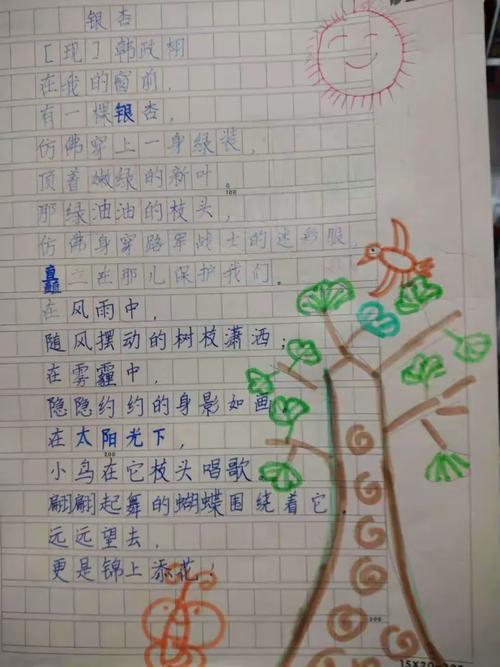 银杏
[现]韩政栩
在我的窗前，
有一棵银杏，
仿佛穿上一身绿装，
顶着嫩绿的新叶
100
那绿油油的枝头，
仿佛身穿路军战士的迷彩服，
矗立在那儿保护我们。
在风雨中，
随风摆动的树枝潇洒；
在雾霾中，
隐隐约约的身影如画，
在太阳光下，
200
小鸟在它枝头唱歌，
翩翩起舞的蝴蝶围绕着它，
远远望去，
更是锦上添花！
300
15×20=300